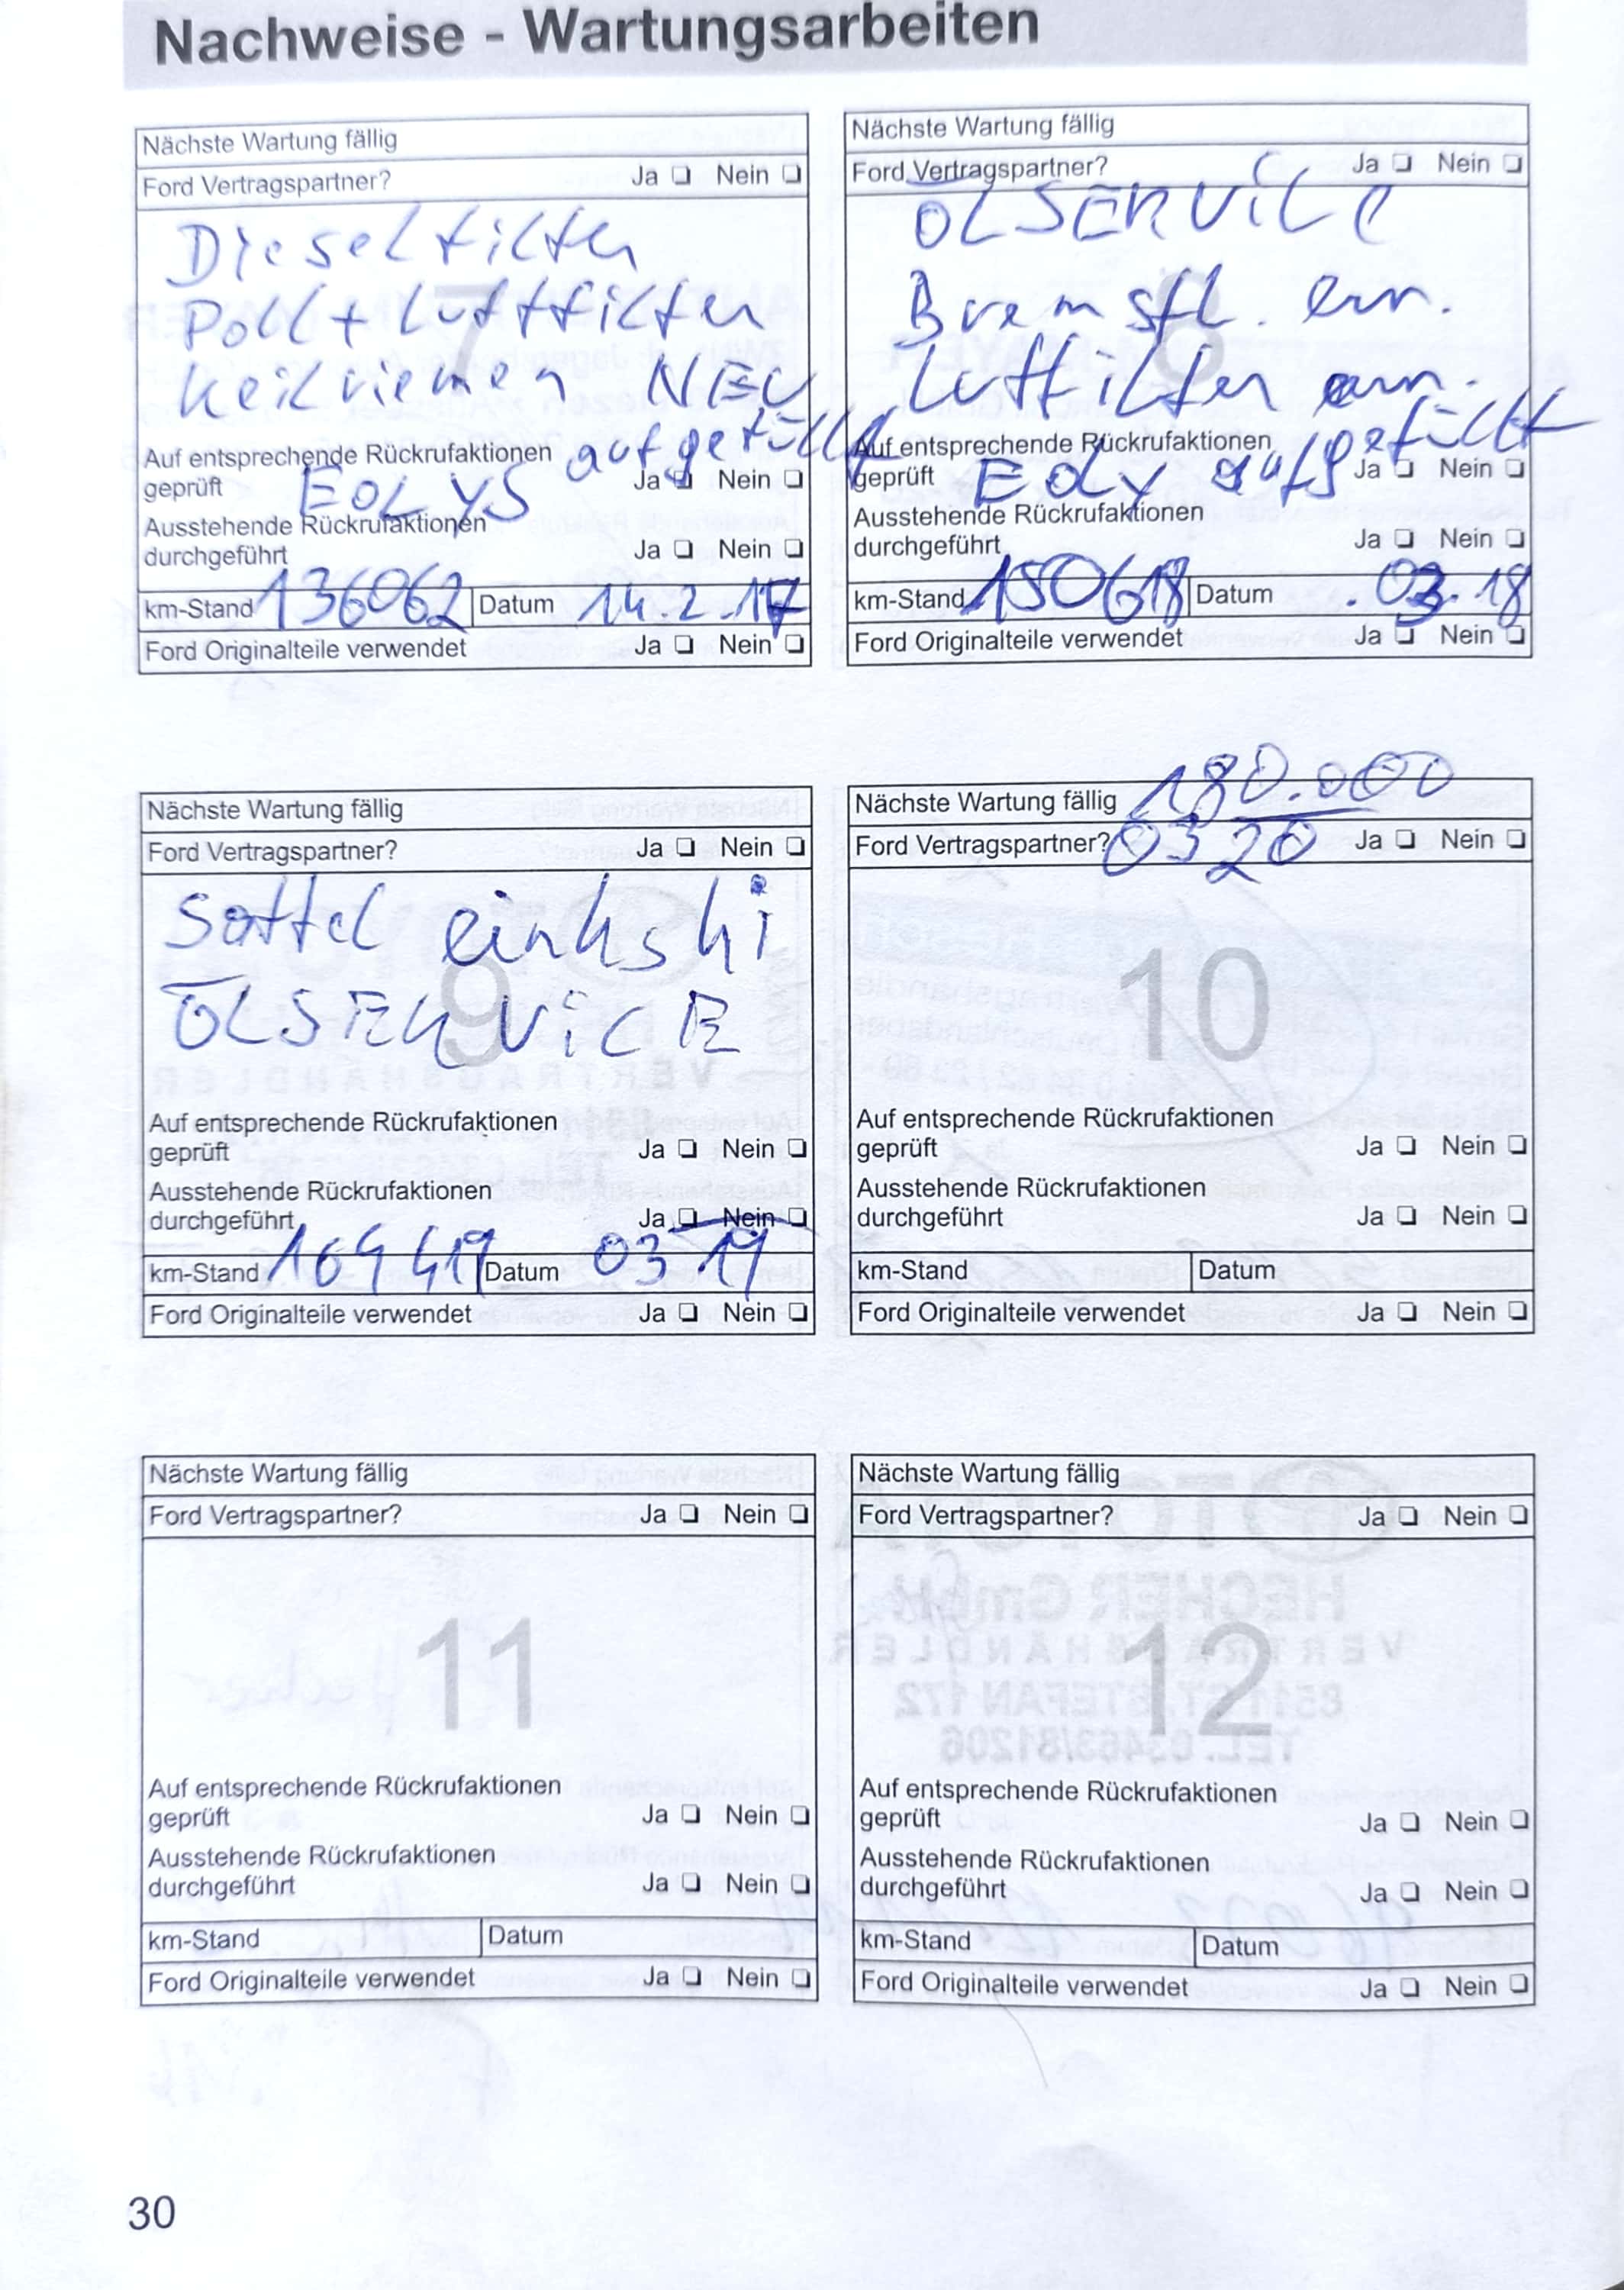 Nachweise - Wartungsarbeiten
Nächste Wartung fällig
Ford Vertragspartner? Ja ❏ Nein ❏
Dieselfilter
7
Poll + Luftfilter
Keilriemen NEU
Auf entsprechende Rückrufaktionen aufgefüllt
geprüft EOLYS Ja ❏ Nein ❏
Ausstehende Rückrufaktionen
durchgeführt Ja ❏ Nein ❏
km-Stand 136062 Datum 14.2.17
Ford Originalteile verwendet Ja ❏ Nein ❏
Nächste Wartung fällig
Ford Vertragspartner? Ja ❏ Nein ❏
ÖLSERVICE
8
Bremsfl. ern.
Luftfilter ern.
Auf entsprechende Rückrufaktionen
geprüft EOLY aufgefüllt Ja ❏ Nein ❏
Ausstehende Rückrufaktionen
durchgeführt Ja ❏ Nein ❏
km-Stand 150618 Datum .03.18
Ford Originalteile verwendet Ja ❏ Nein ❏
Nächste Wartung fällig
Ford Vertragspartner? Ja ❏ Nein ❏
Sattel
9
ÖLSERVICE
Auf entsprechende Rückrufaktionen
geprüft Ja ❏ Nein ❏
Ausstehende Rückrufaktionen
durchgeführt Ja ❏ Nein ❏
km-Stand 169419 Datum 03 19
Ford Originalteile verwendet Ja ❏ Nein ❏
Nächste Wartung fällig 180.000
Ford Vertragspartner? 03 20 Ja ❏ Nein ❏
10
Auf entsprechende Rückrufaktionen
geprüft Ja ❏ Nein ❏
Ausstehende Rückrufaktionen
durchgeführt Ja ❏ Nein ❏
km-Stand Datum
Ford Originalteile verwendet Ja ❏ Nein ❏
Nächste Wartung fällig
Ford Vertragspartner? Ja ❏ Nein ❏
11
Auf entsprechende Rückrufaktionen
geprüft Ja ❏ Nein ❏
Ausstehende Rückrufaktionen
durchgeführt Ja ❏ Nein ❏
km-Stand Datum
Ford Originalteile verwendet Ja ❏ Nein ❏
Nächste Wartung fällig
Ford Vertragspartner? Ja ❏ Nein ❏
12
Auf entsprechende Rückrufaktionen
geprüft Ja ❏ Nein ❏
Ausstehende Rückrufaktionen
durchgeführt Ja ❏ Nein ❏
km-Stand Datum
Ford Originalteile verwendet Ja ❏ Nein ❏
30